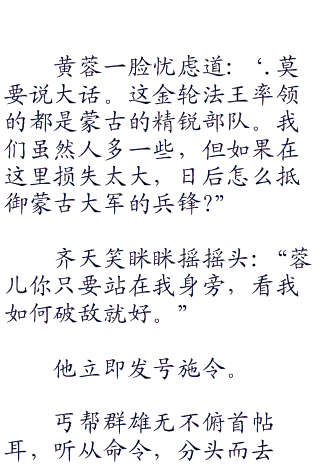 黄蓉一脸忧虑道：‘.莫
要说大话。这金轮法王率领
的都是蒙古的精锐部队。我
们虽然人多一些，但如果在
这里损失太大，日后怎么抵
御蒙古大军的兵锋?”
齐天笑眯眯摇摇头：“蓉
儿你只要站在我身旁，看我
如何破敌就好。”
他立即发号施令。
丐帮群雄无不俯首帖
耳，听从命令，分头而去